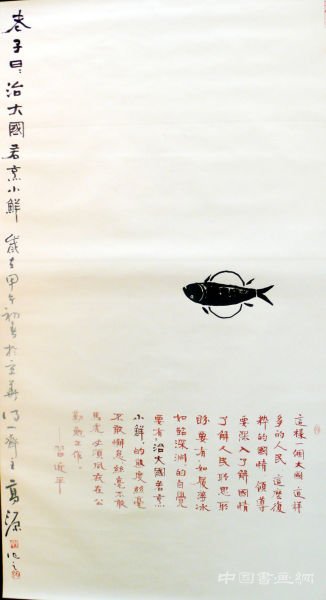 這樣一個大國 這樣
多的人民 這麼復
雜的國情 領導
要深入了解國情
了解人民所思所
盼要有如履薄冰
如臨深淵的自覺
要有“治大國若烹
小鮮”的態度絲毫
不敢懈怠絲毫不敢
馬虎必須夙夜在公
勤勉工作。
——習近平
老子曰治大國若烹小鮮 歲在甲午初春於京華 一齋主 高源
中国書画網